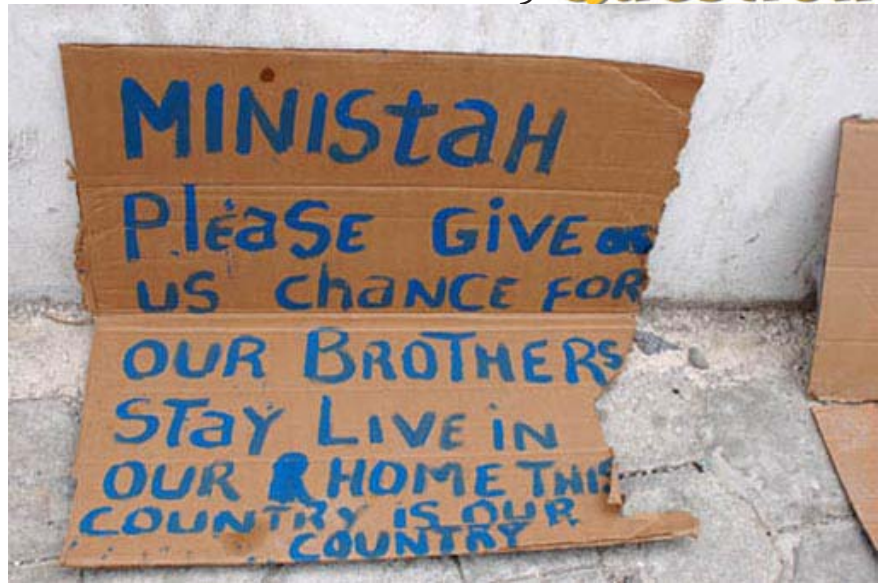 Question
MINIStaH
PlEaSE GIVE
US ChaNCE FOR
OUR BROTHERS
STaY LIVE iN
OUR HOME THIS
COUNTRY IS OUR
COUNTRY